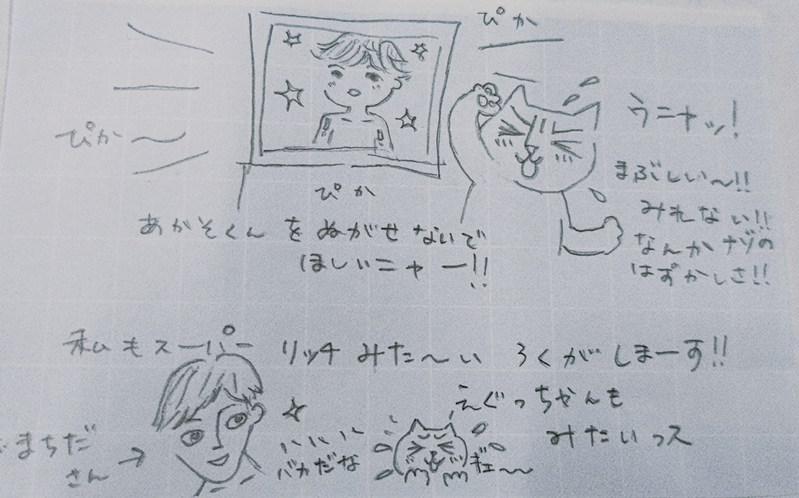 ぴか
ぴか〜
ぴか
ウニャッ!
まぶしい〜!!
みれない!!
なんかナゾの
はずかしさ!!
あがそくんをぬがせないで
ほしいニャー!!
私もスーパーリッチみた〜い ろくがしまーす!!
まちだ
さん→
ハハハハ
バカだな
えぐっちゃんも
みたいっス
ギェ〜